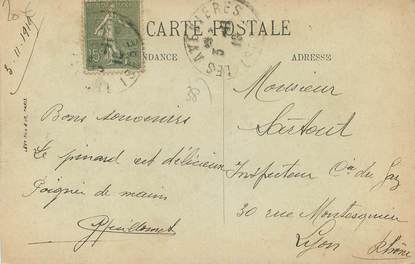 CARTE POSTALE
CORRESPONDANCE
ADRESSE
LES AVENIÈRES
15c
5.11.1919
Bons souvenirs
Le pinard est délicieux
Poignée de mains
Monsieur
Sartout
Inspecteur Cie du Gaz
30 rue Montesquieu
Lyon
Rhône